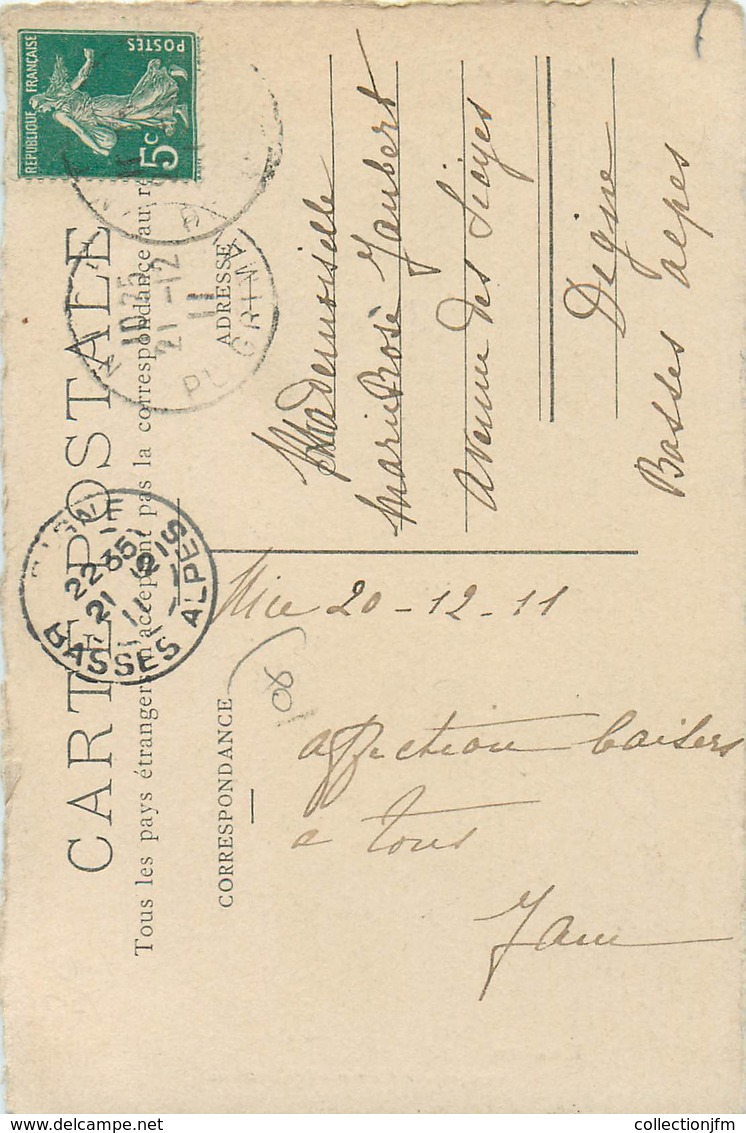 CARTE POSTALE
Tous les pays étrangers n'acceptent pas la correspondance au
CORRESPONDANCE
ADRESSE
REPUBLIQUE FRANÇAISE
POSTES
5c
10 35
21 - 12
11
PL GRIMA
22 35
21 12
11
BASSES ALPES
Nice 20-12-11
108
affection baisers
a tous
Mademoiselle
Marie Rose Jaubert
Avenue des Sieyes
Digne
Basses Alpes
collectionjfm